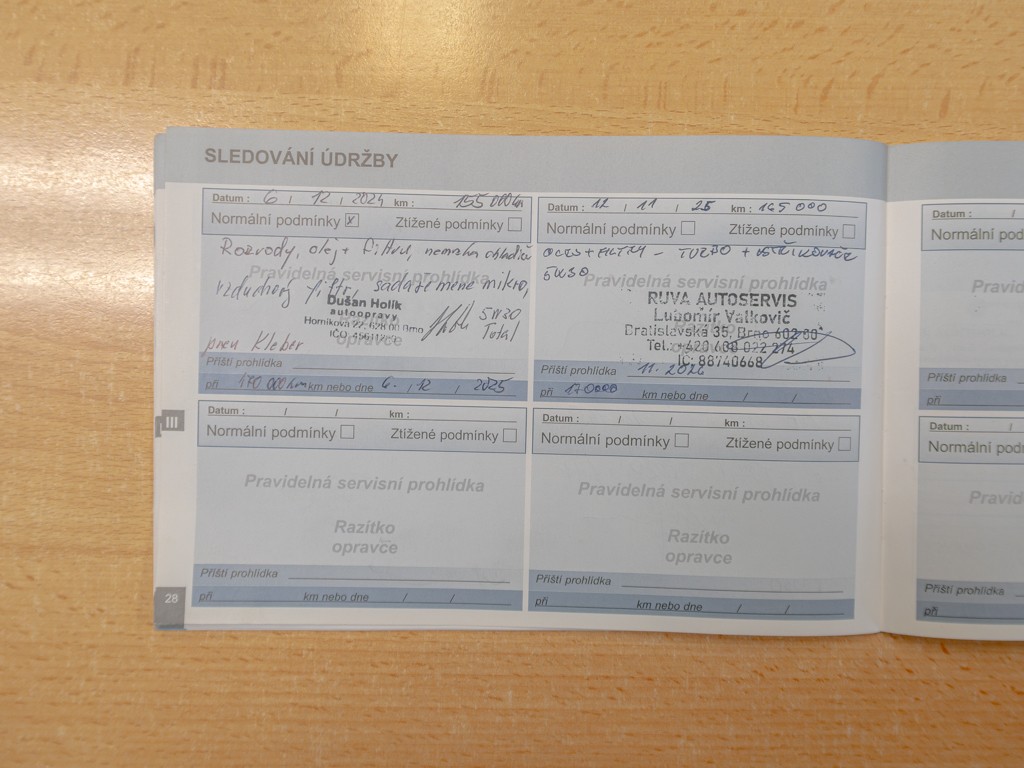 SLEDOVÁNÍ ÚDRŽBY
Datum : 6 / 12 / 2024 km : 155 000 km
Normální podmínky ☒ Ztížené podmínky ☐
Rozvody, olej + filtru, nemrzka chladič
Pravidelná servisní prohlídka
vzduchový filtr, sada řemene mikro,
Dušan Holík
autoopravy
Horníkova 22, 628 00 Brno
IČO
opravce
5W30
Total
pneu Kleber
Příští prohlídka
při 170 000 km km nebo dne 6. / 12 / 2025
Datum : 12 / 11 / 25 km : 165 000
Normální podmínky ☐ Ztížené podmínky ☐
OLEJ + FILTRY - TURBO + VSTŘIKOVAČE
Pravidelná servisní prohlídka
RUVA AUTOSERVIS
Lubomír Valkovič
Bratislavská 35, Brno 602 00
Tel.: +420 608 022 214
IČ: 88740668
Příští prohlídka 11. 2026
při 170000 km nebo dne / /
Datum : / / km :
Normální podmínky ☐ Ztížené podmínky ☐
Pravidelná servisní prohlídka
Razítko
opravce
Příští prohlídka
při km nebo dne / /
Datum : / / km :
Normální podmínky ☐ Ztížené podmínky ☐
Pravidelná servisní prohlídka
Razítko
opravce
Příští prohlídka
při km nebo dne / /
III
28
Datum : /
Normální pod
Pravid
Příští prohlídka
při
Datum : /
Normální pod
Pravid
Příští prohlídka
při